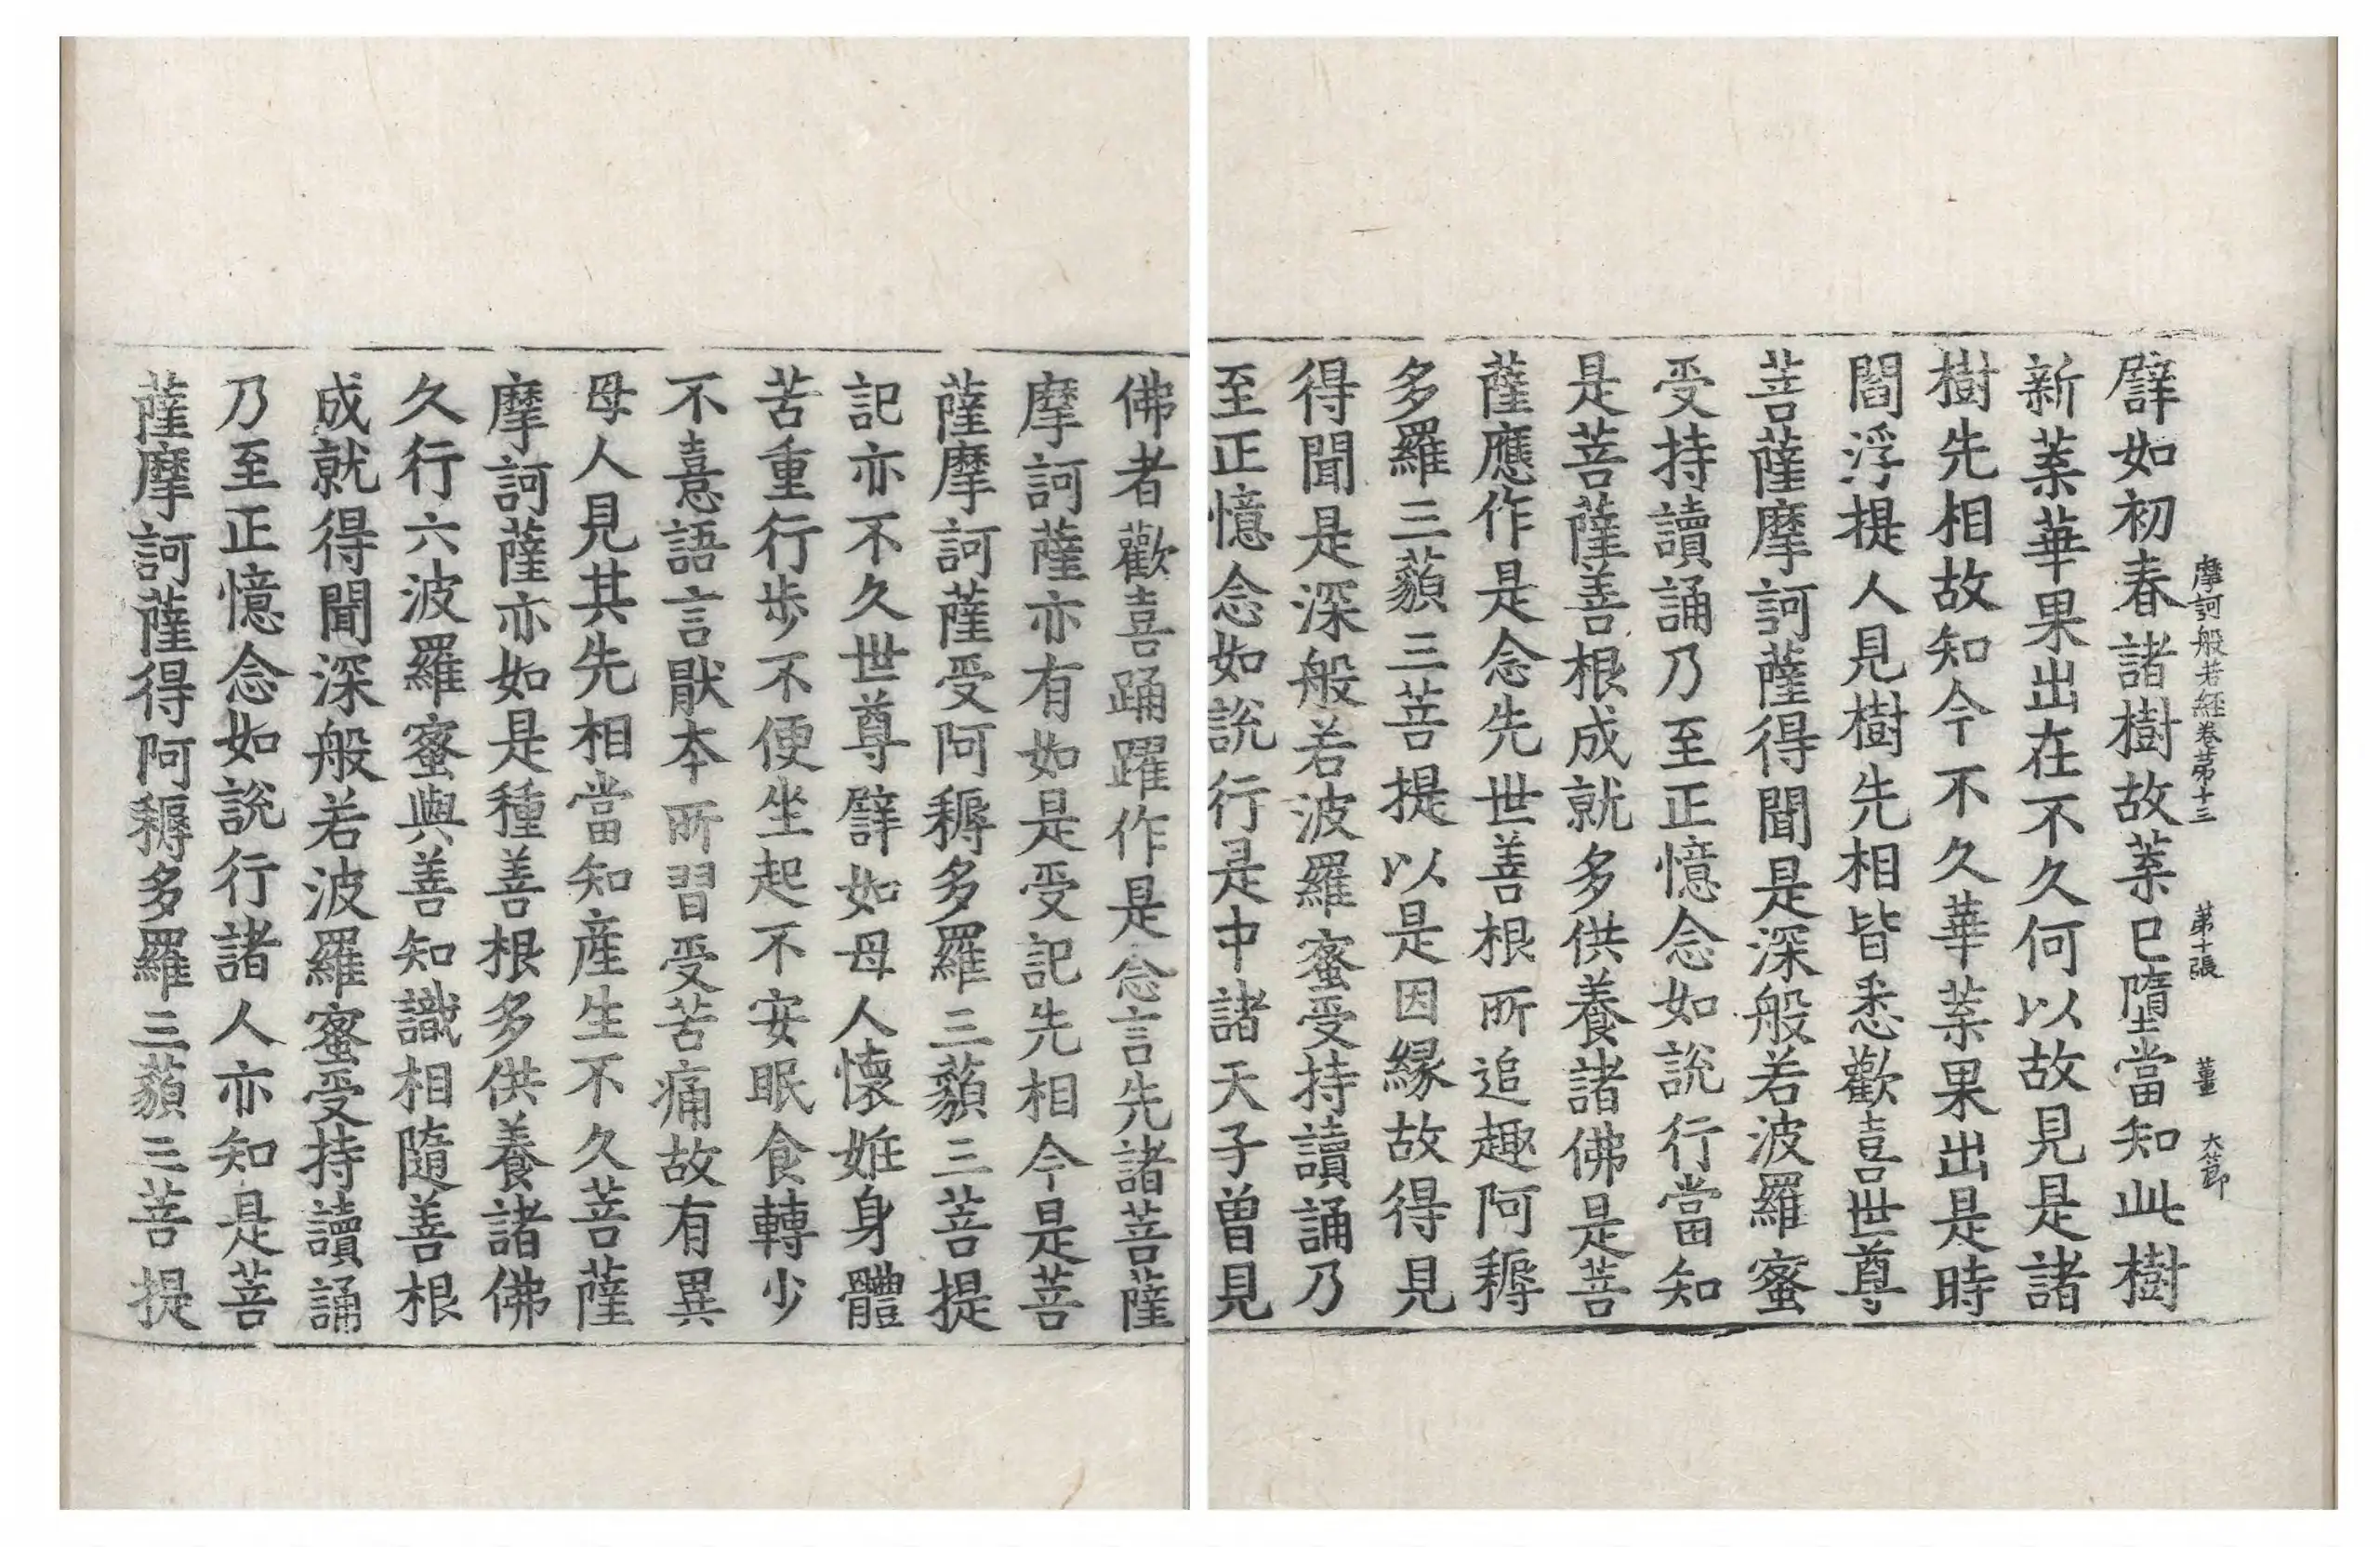 摩訶般若經卷第十三 第十張 董 大節
譬如初春諸樹故葉已墮當知此樹
新葉華果出在不久何以故見是諸
樹先相故知今不久華葉果出是時
閻浮提人見樹先相皆悉歡喜世尊
菩薩摩訶薩得聞是深般若波羅蜜
受持讀誦乃至正憶念如說行當知
是菩薩善根成就多供養諸佛是菩
薩應作是念先世善根所追趣阿耨
多羅三藐三菩提以是因緣故得見
得聞是深般若波羅蜜受持讀誦乃
至正憶念如說行是中諸天子曾見
佛者歡喜踊躍作是念言先諸菩薩
摩訶薩亦有如是受記先相今是菩
薩摩訶薩受阿耨多羅三藐三菩提
記亦不久世尊譬如母人懷妊身體
苦重行步不便坐起不安眠食轉少
不憙語言猒本所習受苦痛故有異
母人見其先相當知産生不久菩薩
摩訶薩亦如是種善根多供養諸佛
久行六波羅蜜與善知識相隨善根
成就得聞深般若波羅蜜受持讀誦
乃至正憶念如說行諸人亦知是菩
薩摩訶薩得阿耨多羅三藐三菩提